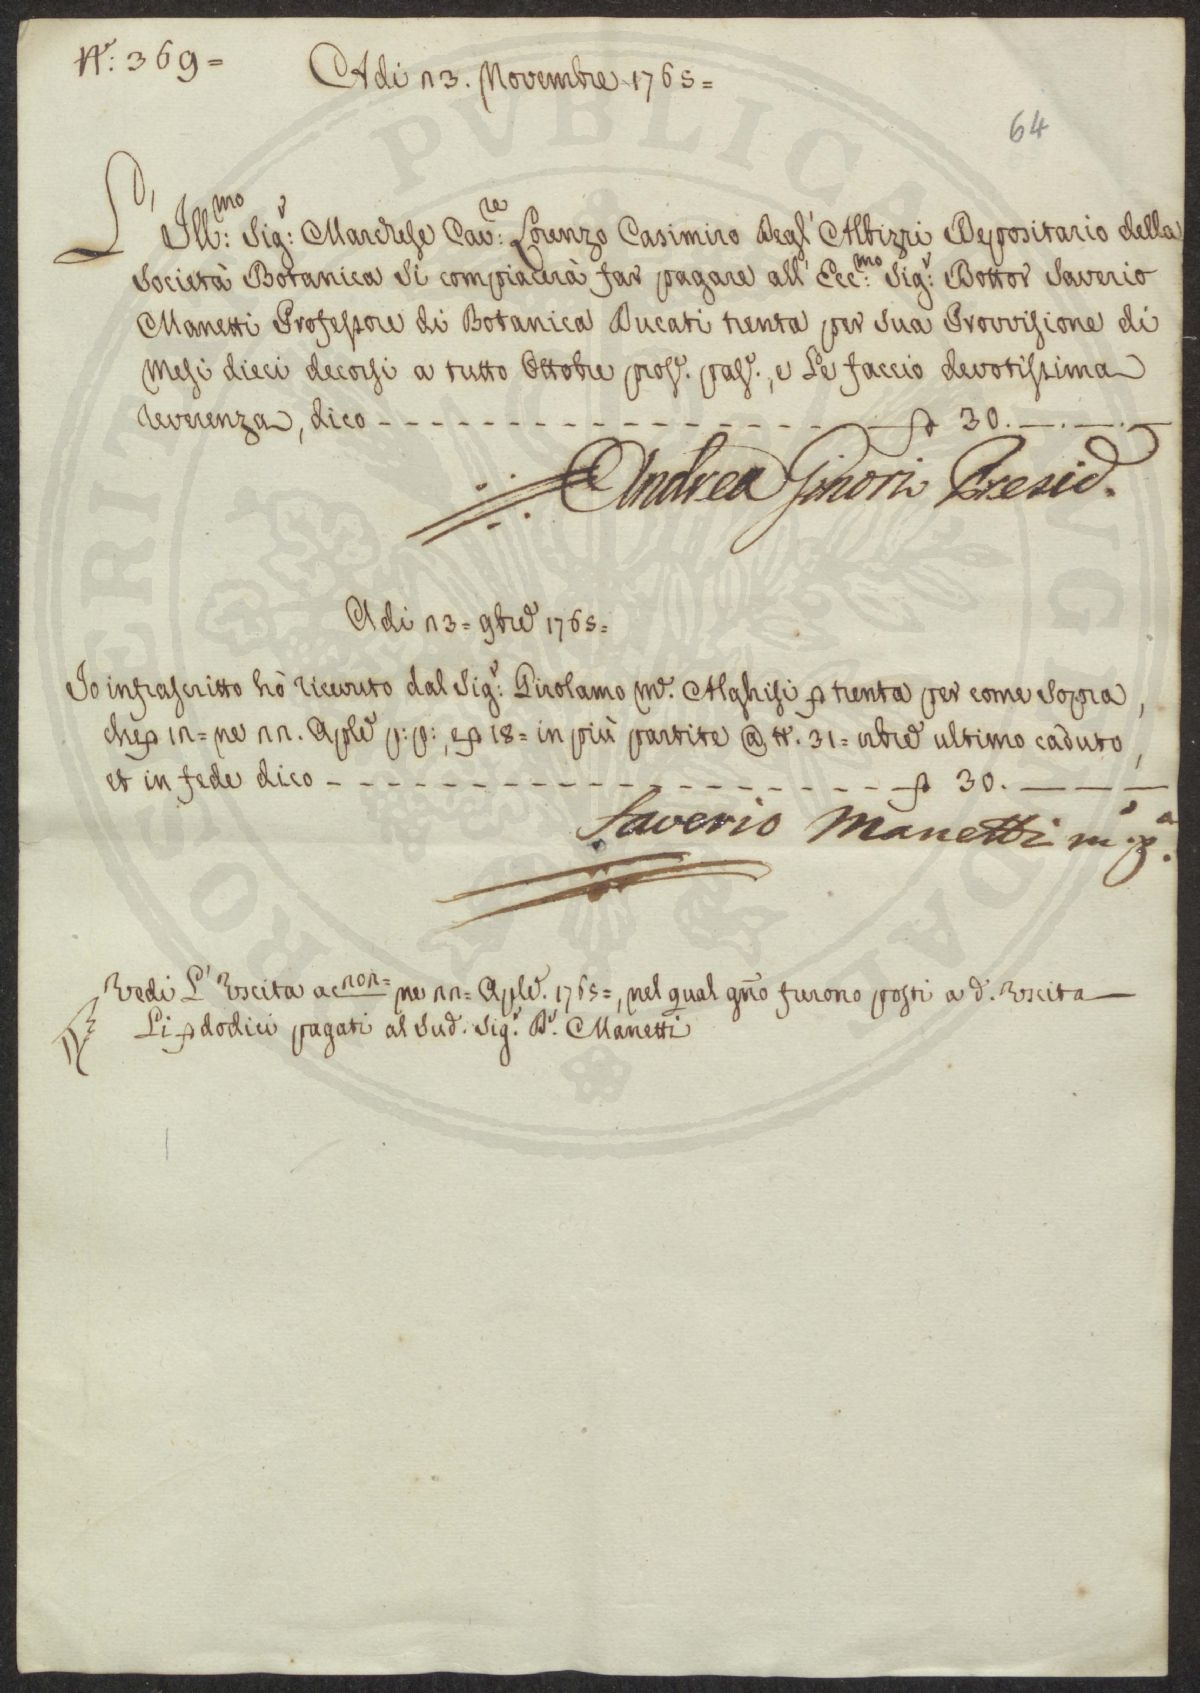 N.º: 369=
Adi 13. Novembre 1765=
64
L'Ill:mo Sig:r Marchese Cav:re Lorenzo Casimiro Degl' Albizzi Depositario della
Società Botanica Si compiacerà far pagare all' Ecc:mo Sig:r Dottor Saverio
Manetti Professore di Botanica Ducati trenta per sua Provvisione di
Mesi dieci decorsi a tutto Ottobre pross.º pass.º, e Le faccio devotissima
reverenza, dico - - - - - - - - - - - - - - - - - 30.—.—.—
Andrea Ginori Presid.
Adi 13= 9bre 1765=
Io infrascritto hò ricevuto dal Sig:r Girolamo M.ª Alghisi trenta per come Sopra,
che 12= ne 22. Aple p:p:, e 18= in più partite @ tt.º 31= ultimo caduto,
et in fede dico - - - - - - - - - - - - - - - - - - 30.— — —
Saverio Manetti m.º p.ª
Vedi L' Uscita ac ne 22= Aple. 1765=, nel qual furono posti a d.ª Uscita
Li dodici pagati al Sud.º Sig.r D.r Manetti
ROSARITER PVBLICA FLORENTINA